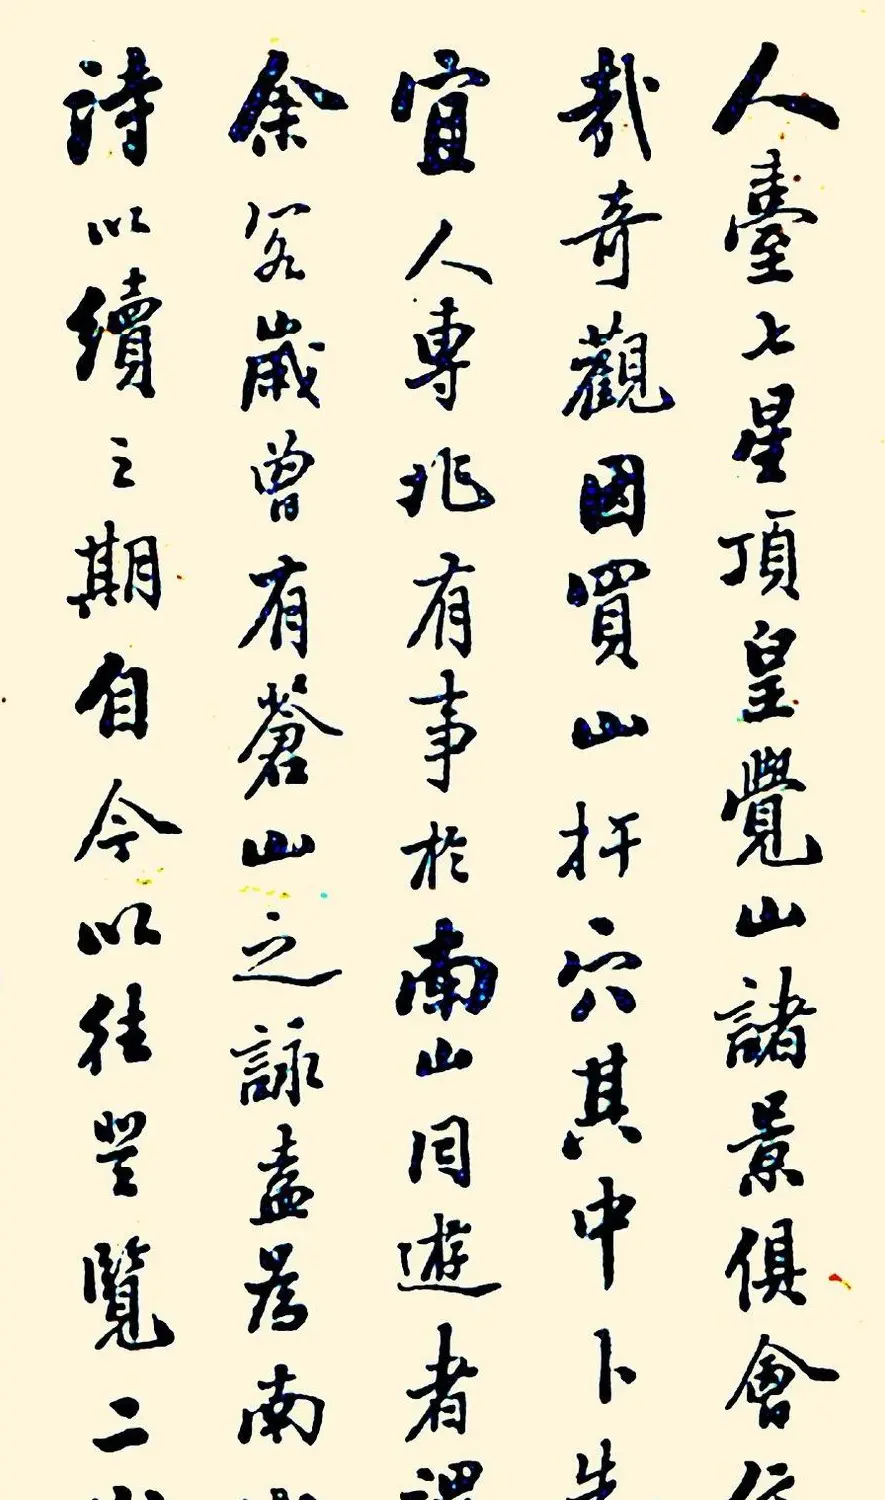 人臺七星頂皇覺山諸景俱會
哉奇觀因買山扞穴其中卜先
宜人專兆有事於南山同遊者謂
余客歲曾有蒼山之詠盍為南
詩以續之期自今以往登覽二